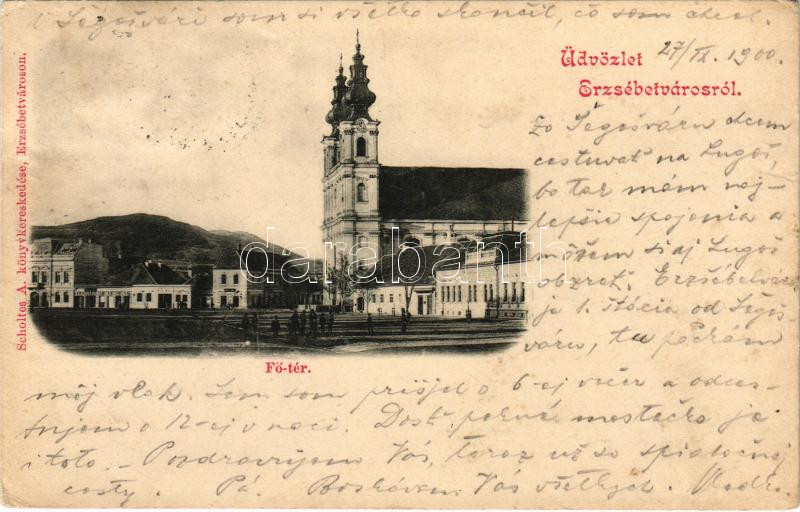 V Segošvári som si všetko skončil, čo som chcel.
27/IX. 1900.
Üdvözlet
Erzsébetvárosról.
Scholtes A. könyvkereskedése, Erzsébetvároson.
darabanth
Zo Šegošváru idem
cestuvať na Lugoš,
bo tak mám naj-
lepšie spojenia a
môžem si aj Lugoš
obzreť. Erzsébetváros
je 1. štácia od Segoš-
váru, tu čekám
Fő-tér.
môj vlak. Sem som prišiel o 6-ej večer a odces-
tujem o 12-ej v noci. Dosť pekné mestečko je
i toto. - Pozdravujem Vás, teraz už so spiatočnej
cesty. Pá. Boskávam Vás všetkých.